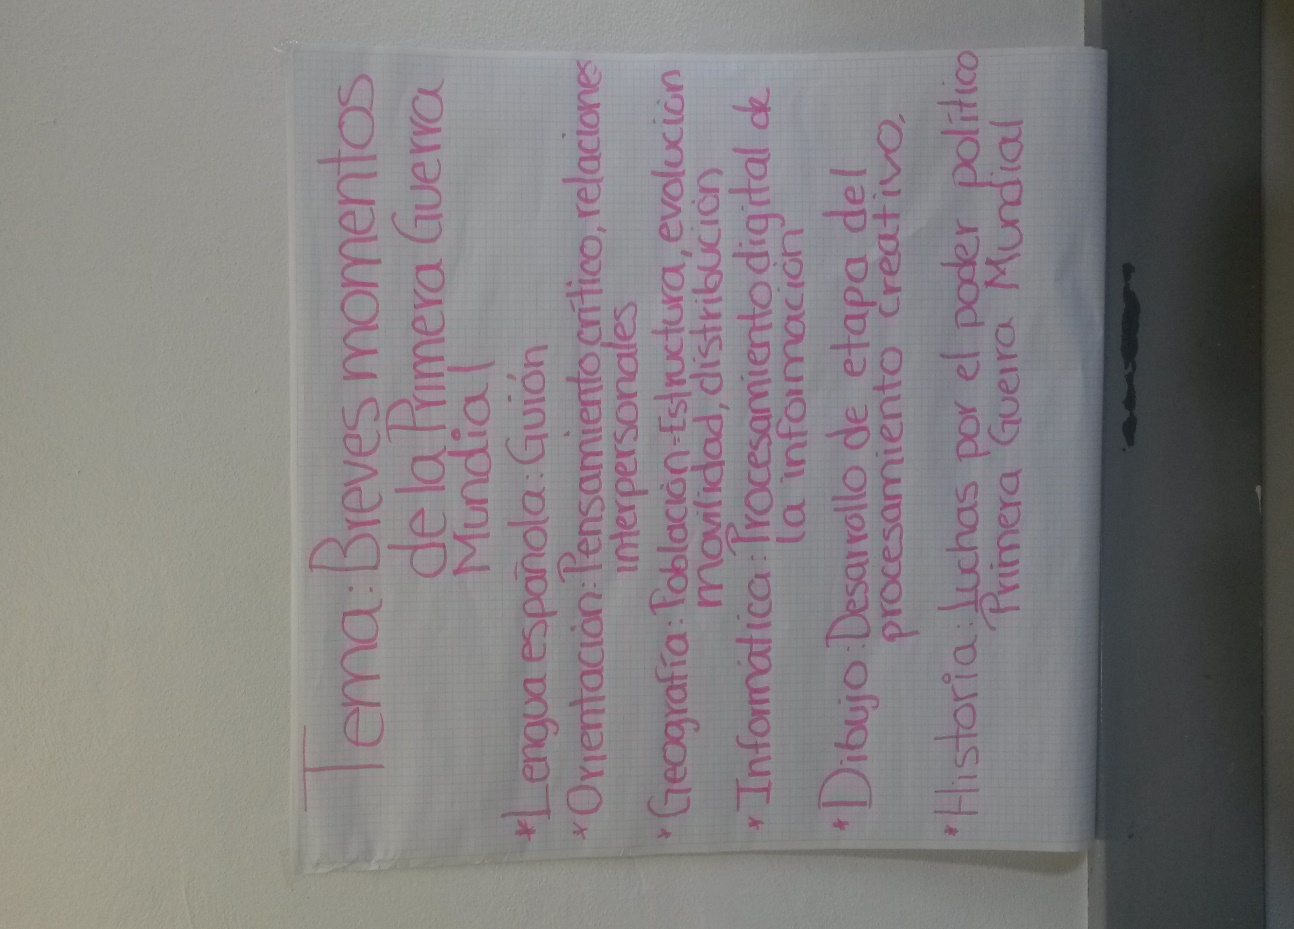 Tema: Breves momentos
de la Primera Guerra
Mundial
*Lengua española: Guión
*Orientación: Pensamiento crítico, relaciones
interpersonales
*Geografía: Población=Estructura, evolución
movilidad, distribución
*Informática: Procesamiento digital de
la información
*Dibujo: Desarrollo de etapa del
procesamiento creativo,
*Historia: Luchas por el poder político
Primera Guerra Mundial